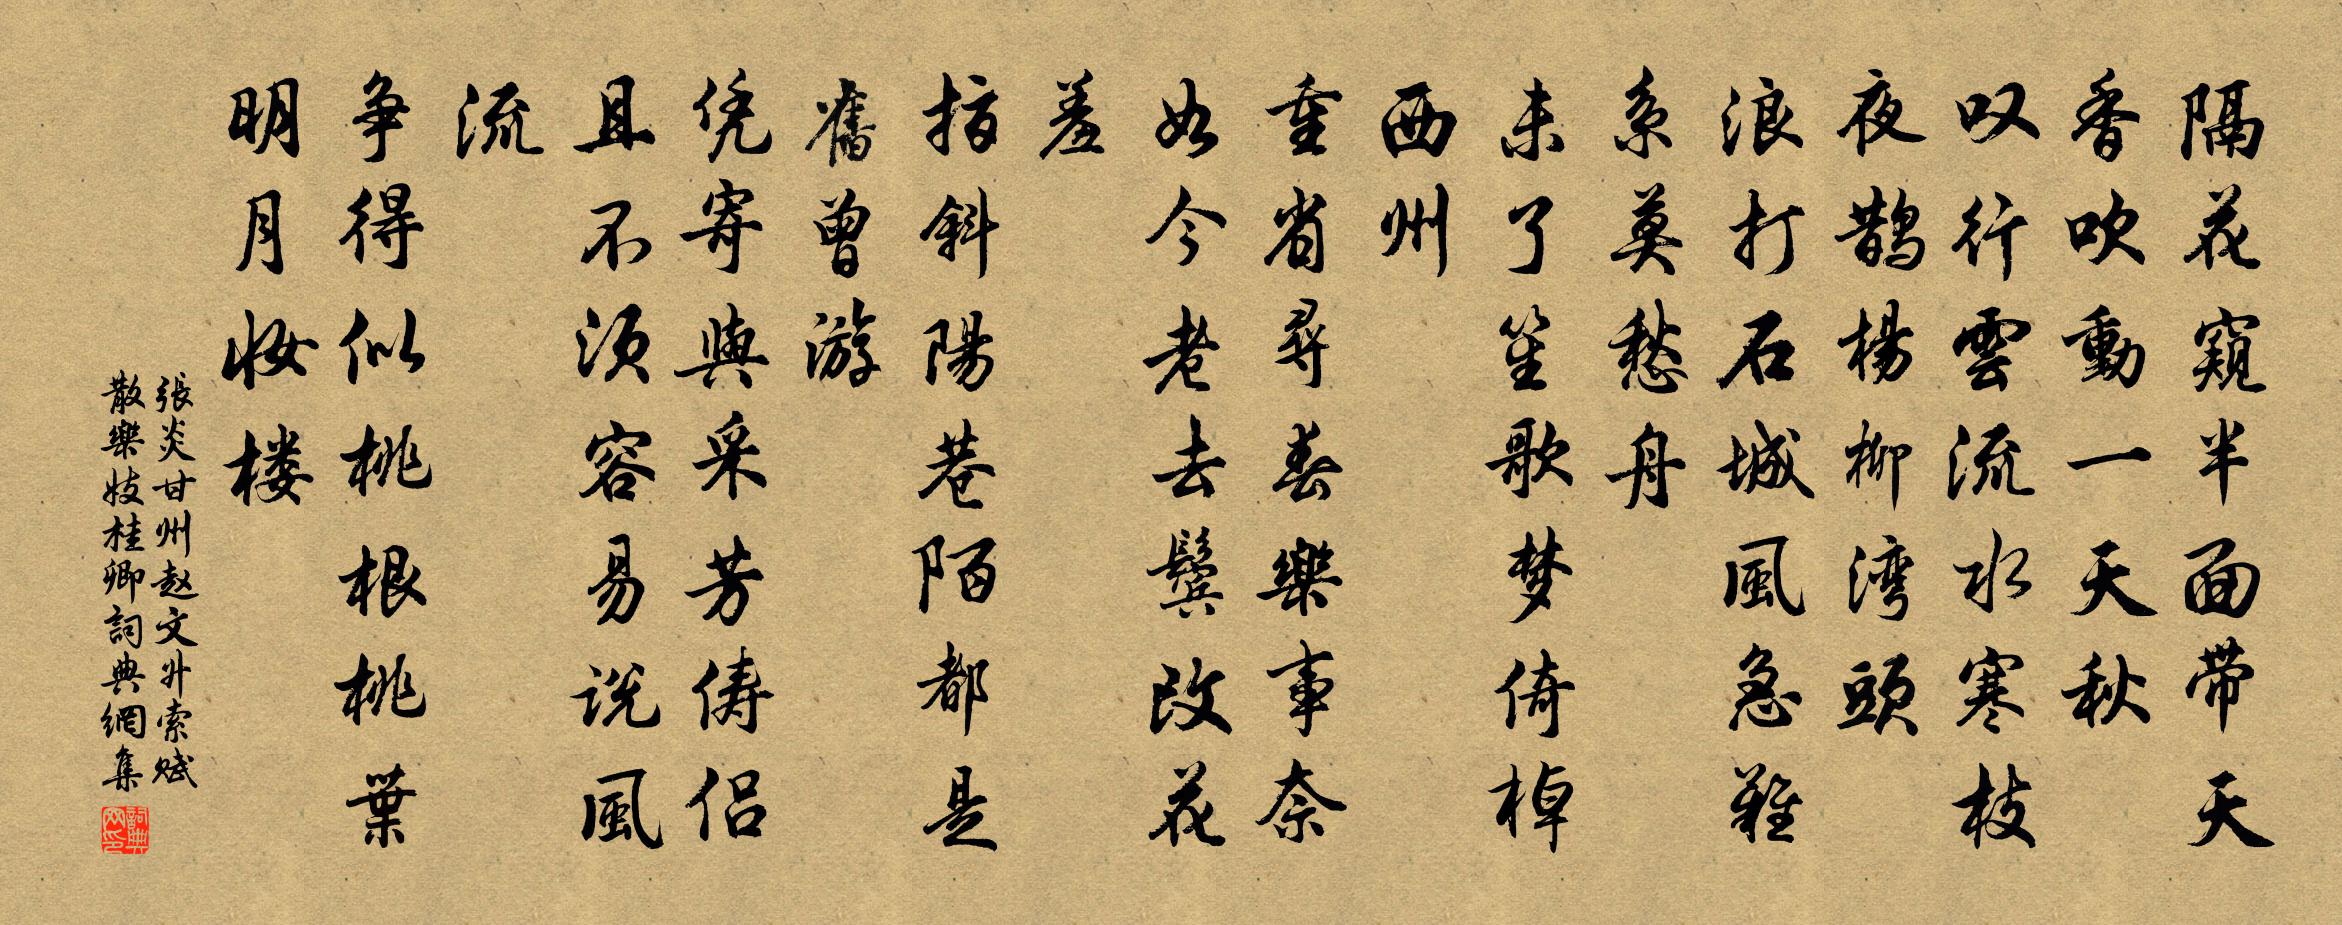 隔花窺半面带天
香吹動一天秋
叹行雲流水寒枝
夜鹊楊柳湾頭
浪打石城風急難
系莫愁舟
未了笙歌梦倚棹
西州
重省尋春樂事奈
如今老去鬓改花
羞
指斜陽巷陌都是
舊曾游
凭寄與采芳俦侣
且不须容易说風
流
争得似桃根桃葉
明月妆楼
張炎甘州赵文升索赋
散樂妓桂卿詞典網集
詞典网印